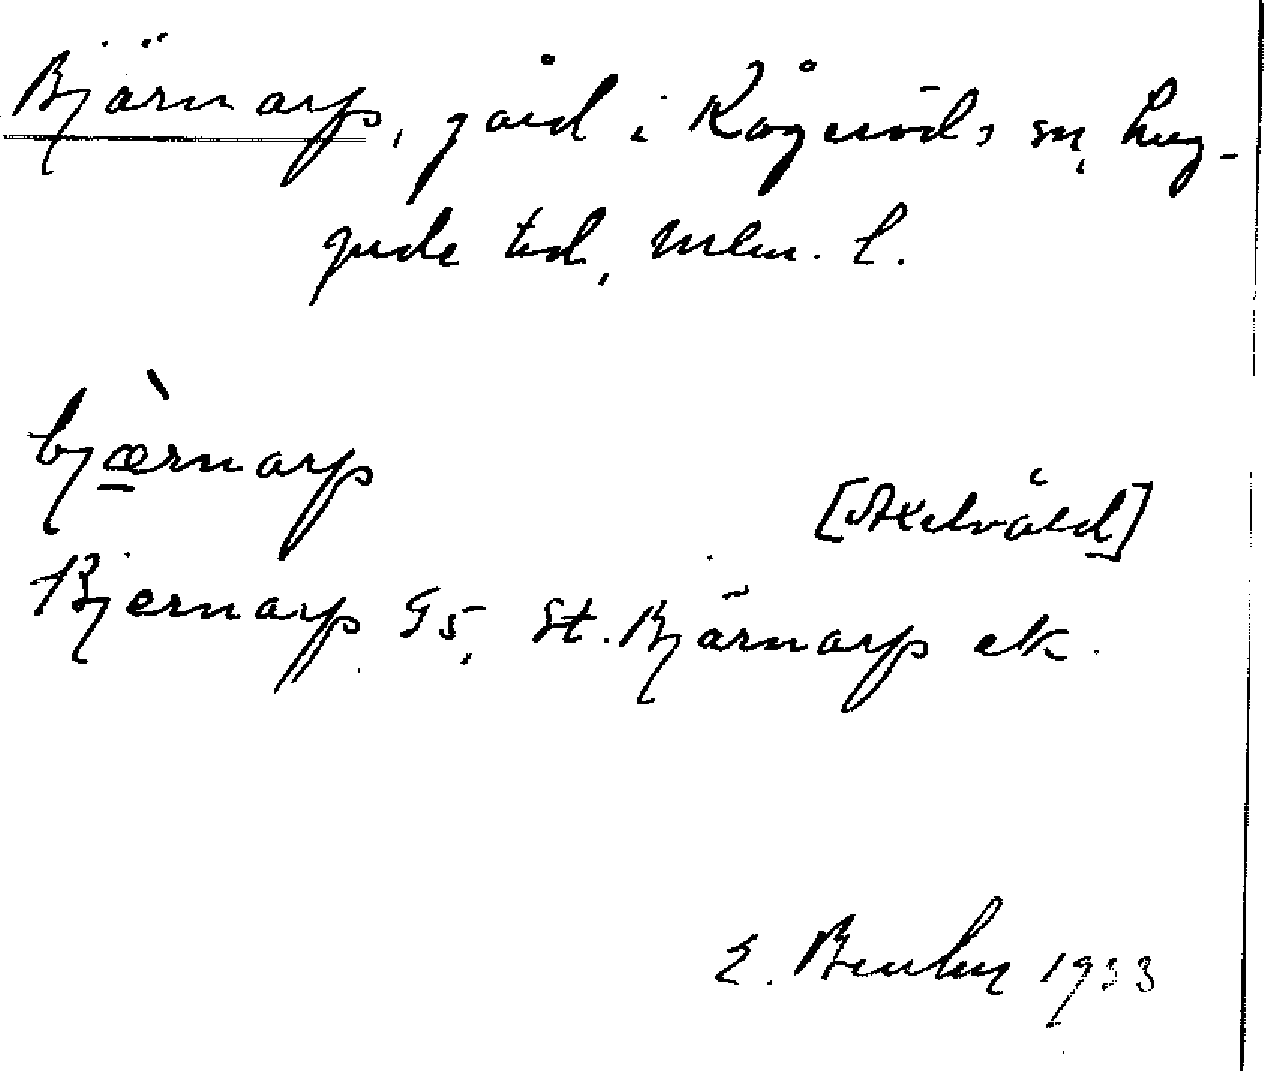 Bjärnarp, gård i Kågeröds sn, Lug-
gude hd, Mlm. l.
bjæ̀rnarp
[Axelvåld]
Bjernarp G5, St. Bjärnarp ek.
E. 1933